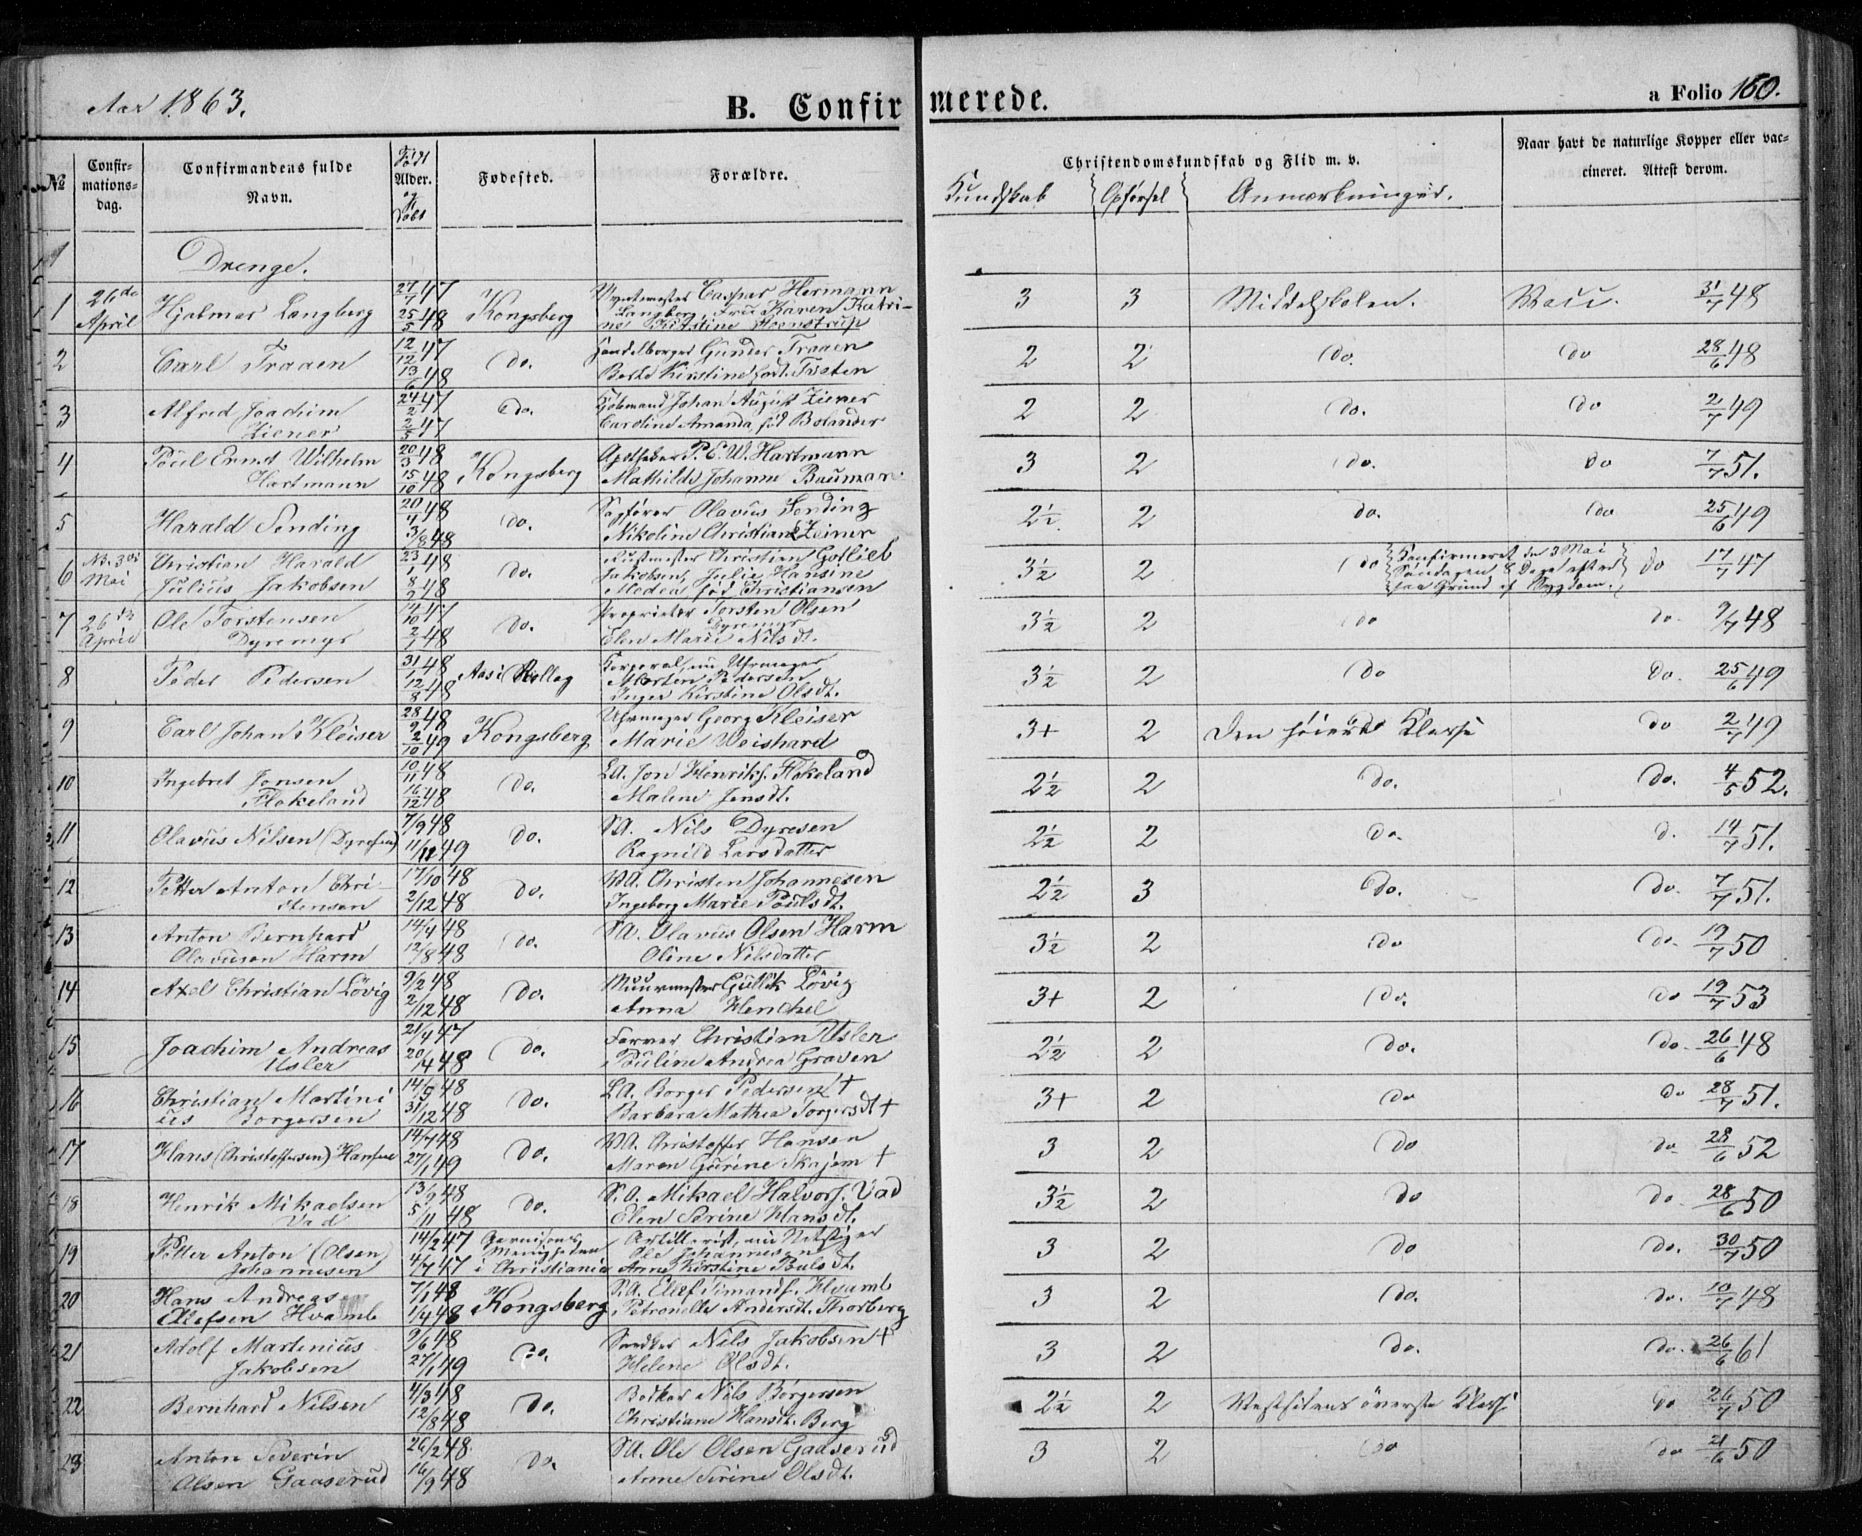 Aar 1863.
B. Confirmerede.
a Folio 160.
No
Confirmationsdag.
Confirmandens fulde Navn.
Født Alder. og Døbt
Fødested.
Forældre.
Christendomskundskab og Flid m. v.
Kundskab
Opførsel
Anmærkninger.
Naar havt de naturlige Kopper eller vaccineret. Attest derom.
Drenge.
1 26de April Hjalmar Langberg 27/7 47 25/5 48 Kongsberg Myntmester Caspar Hermann Langberg, Frue Karen Katrine Kirstine Steenstrup 3 3 Middelskolen. Vacc. 31/7 48
2 Carl Traaen 12/12 47 13/6 48 do. Handelsborger Gunder Traaen Berte Kirstine født Tresten 2 2 do. do 28/6 48
3 Alfred Joachim Ziener 24/2 47 2/5 47 do. Kjøbmand Johan August Ziener Caroline Amanda fød Bolander 2 2 do. do 2/7 49
4 Poul Ernst Wilhelm Hartmann 20/3 48 15/10 48 Kongsberg Apotheker P. E. W. Hartmann Mathilde Johanne Bauman 3 2 do. do 7/7 51.
5 Harald Sending 20/4 48 3/8 48 do. Sagfører Olavus Sending Nikoline Christiane Zeiner 2½ 2 do. do 25/6 49
6 No. 3die Mai Christian Harald Julius Jakobsen 23/1 48 8/2 48 do. Christian Gotlieb Jakobsen, Julie Hansine Medea fød Christiansen 3½ 2 do Konfirmeret den 3 Mai Søndagen 8 Dage efter paa Grund af Sygdom. do 17/7 47
7 26de April Ole Torstensen Dyremyr 14/10 47 2/7 48 do. Proprietær Torsten Olsen Dyremyr Elen Marie Nilsdt. 3½ 2 do do. 9/7 48
8 Peder Pedersen 31/1 48 12/8 48 Aas i Rollag Korporal, nu Uhrmager Morten Pedersen Inger Kirstine Olsdt. 3½ 2 do do. 25/6 49
9 Carl Johan Kleiser 28/9 48 2/10 49 Kongsberg Uhrmager Georg Kleiser Marie Weishard 3+ 2 Den høiere Klasse do 2/7 49
10 Ingebret Jonsen Flakeland 10/11 48 16/12 48 do. LA. Jon Henriks. Flakeland Malene Jensdt. 2½ 2 do. do. 4/5 52.
11 Olavus Nilsen (Dyresen) 7/9 48 11/12 49 do. SA. Nils Dyresen Ragnild Larsdatter 2½ 2 do. d. 14/7 51.
12 Petter Anton Christensen 17/10 48 2/12 48 do. VA. Christen Johannesen Ingeborg Marie Poulsdt. 2½ 3 do. do. 7/7 51.
13 Anton Bernhard Olavusen Harm 14/4 48 12/8 48 do. SA. Olavus Olsen Harm Oline Nilsdatter 3½ 2 do do. 19/7 50
14 Axel Christian Lövig 9/2 48 2/12 48 do. Muurmester Gullik Lövig Anna Henchel 3+ 2 do. do 19/7 53
15 Joachim Andreas Usler 21/4 47 20/14 48 do. Farver Christian Usler Pouline Andrea Graven 2½ 2 do. do. 26/6 48
16 Christian Martinius Borgersen 14/5 48 31/12 48 do. LA. Borger Pedersen † Barbara Mathea Torgersdt † 3+ 2 do do 28/7 51.
17 Hans (Christoffersen) Hansen 14/7 48 27/1 49 do. VA. Christoffer Hansen Maren Gurine Skajem † 3 2 do do. 28/6 52
18 Henrik Mikaelsen Vad 13/9 48 5/11 48 do. S.A. Mikael Halvors. Vad Elen Serine Hansdt. 3½ 2 do do. 28/6 50
19 Petter Anton (Olsen) Johannesen 14/2 47 4/7 47 Garnisons Menigheden i Christiania Artillerist, nu Ole Johannesen Anne Kirstine Pulsdt. 3 2 do do. 30/7 50
20 Hans Andreas Ellefsen Hvamb 7/1 48 1/4 48 Kongsberg S.A. Ellef Simonds. Hvamb Petronelle Andersdt. Thorberg 3 2 do. do. 10/7 48
21 Adolf Martinius Jakobsen 9/6 48 27/1 49 do. Snedker Nils Jakobsen † Helene Olsdt. 3 2 do. do. 26/6 61
22 Bernhard Nilsen 4/3 48 12/8 48 do. Bødker Nils Börgersen Christiane Hansdt. Berg 2½ 2 Vestsidens överste Klasse do 26/7 50
23 Anton Severin Olsen Gaaserud 26/2 48. 16/9 48 do. SA. Ole Olsen Gaaserud Anne Serine Olsdt. 3 2 do do 21/6 50